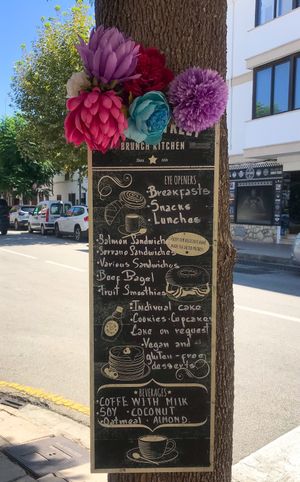 BRUNCH KITCHEN
EYE OPENERS
Breakfasts
Snacks
Lunches
Salmon Sandwiches
Serrano Sandwiches
Various Sandwiches
Beef Bagel
Fruit Smoothies
Indivial cake
Cookies · Cupcakes
Cake on request
Vegan and
gluten-free
desserts
BEVERAGES
COFFE WITH MILK
SOY · COCONUT
Oatmeal · ALMOND